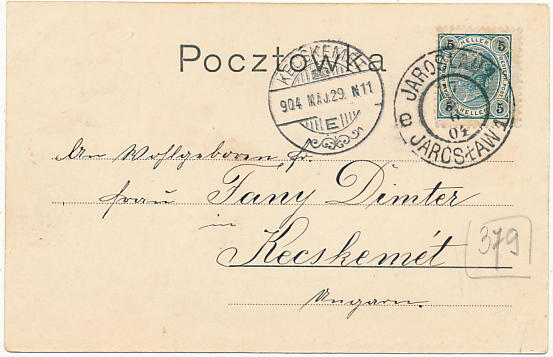 Pocztówka
KECSKEMÉT
904 MÁJ.29. N11
E
5 HELLER 5
5 5
JAROSLAU 1
04
JAROSŁAW 1
An Wohlgeboren Fr.
Frau Fany Dimter
in
Kecskemét
379
Ungarn.